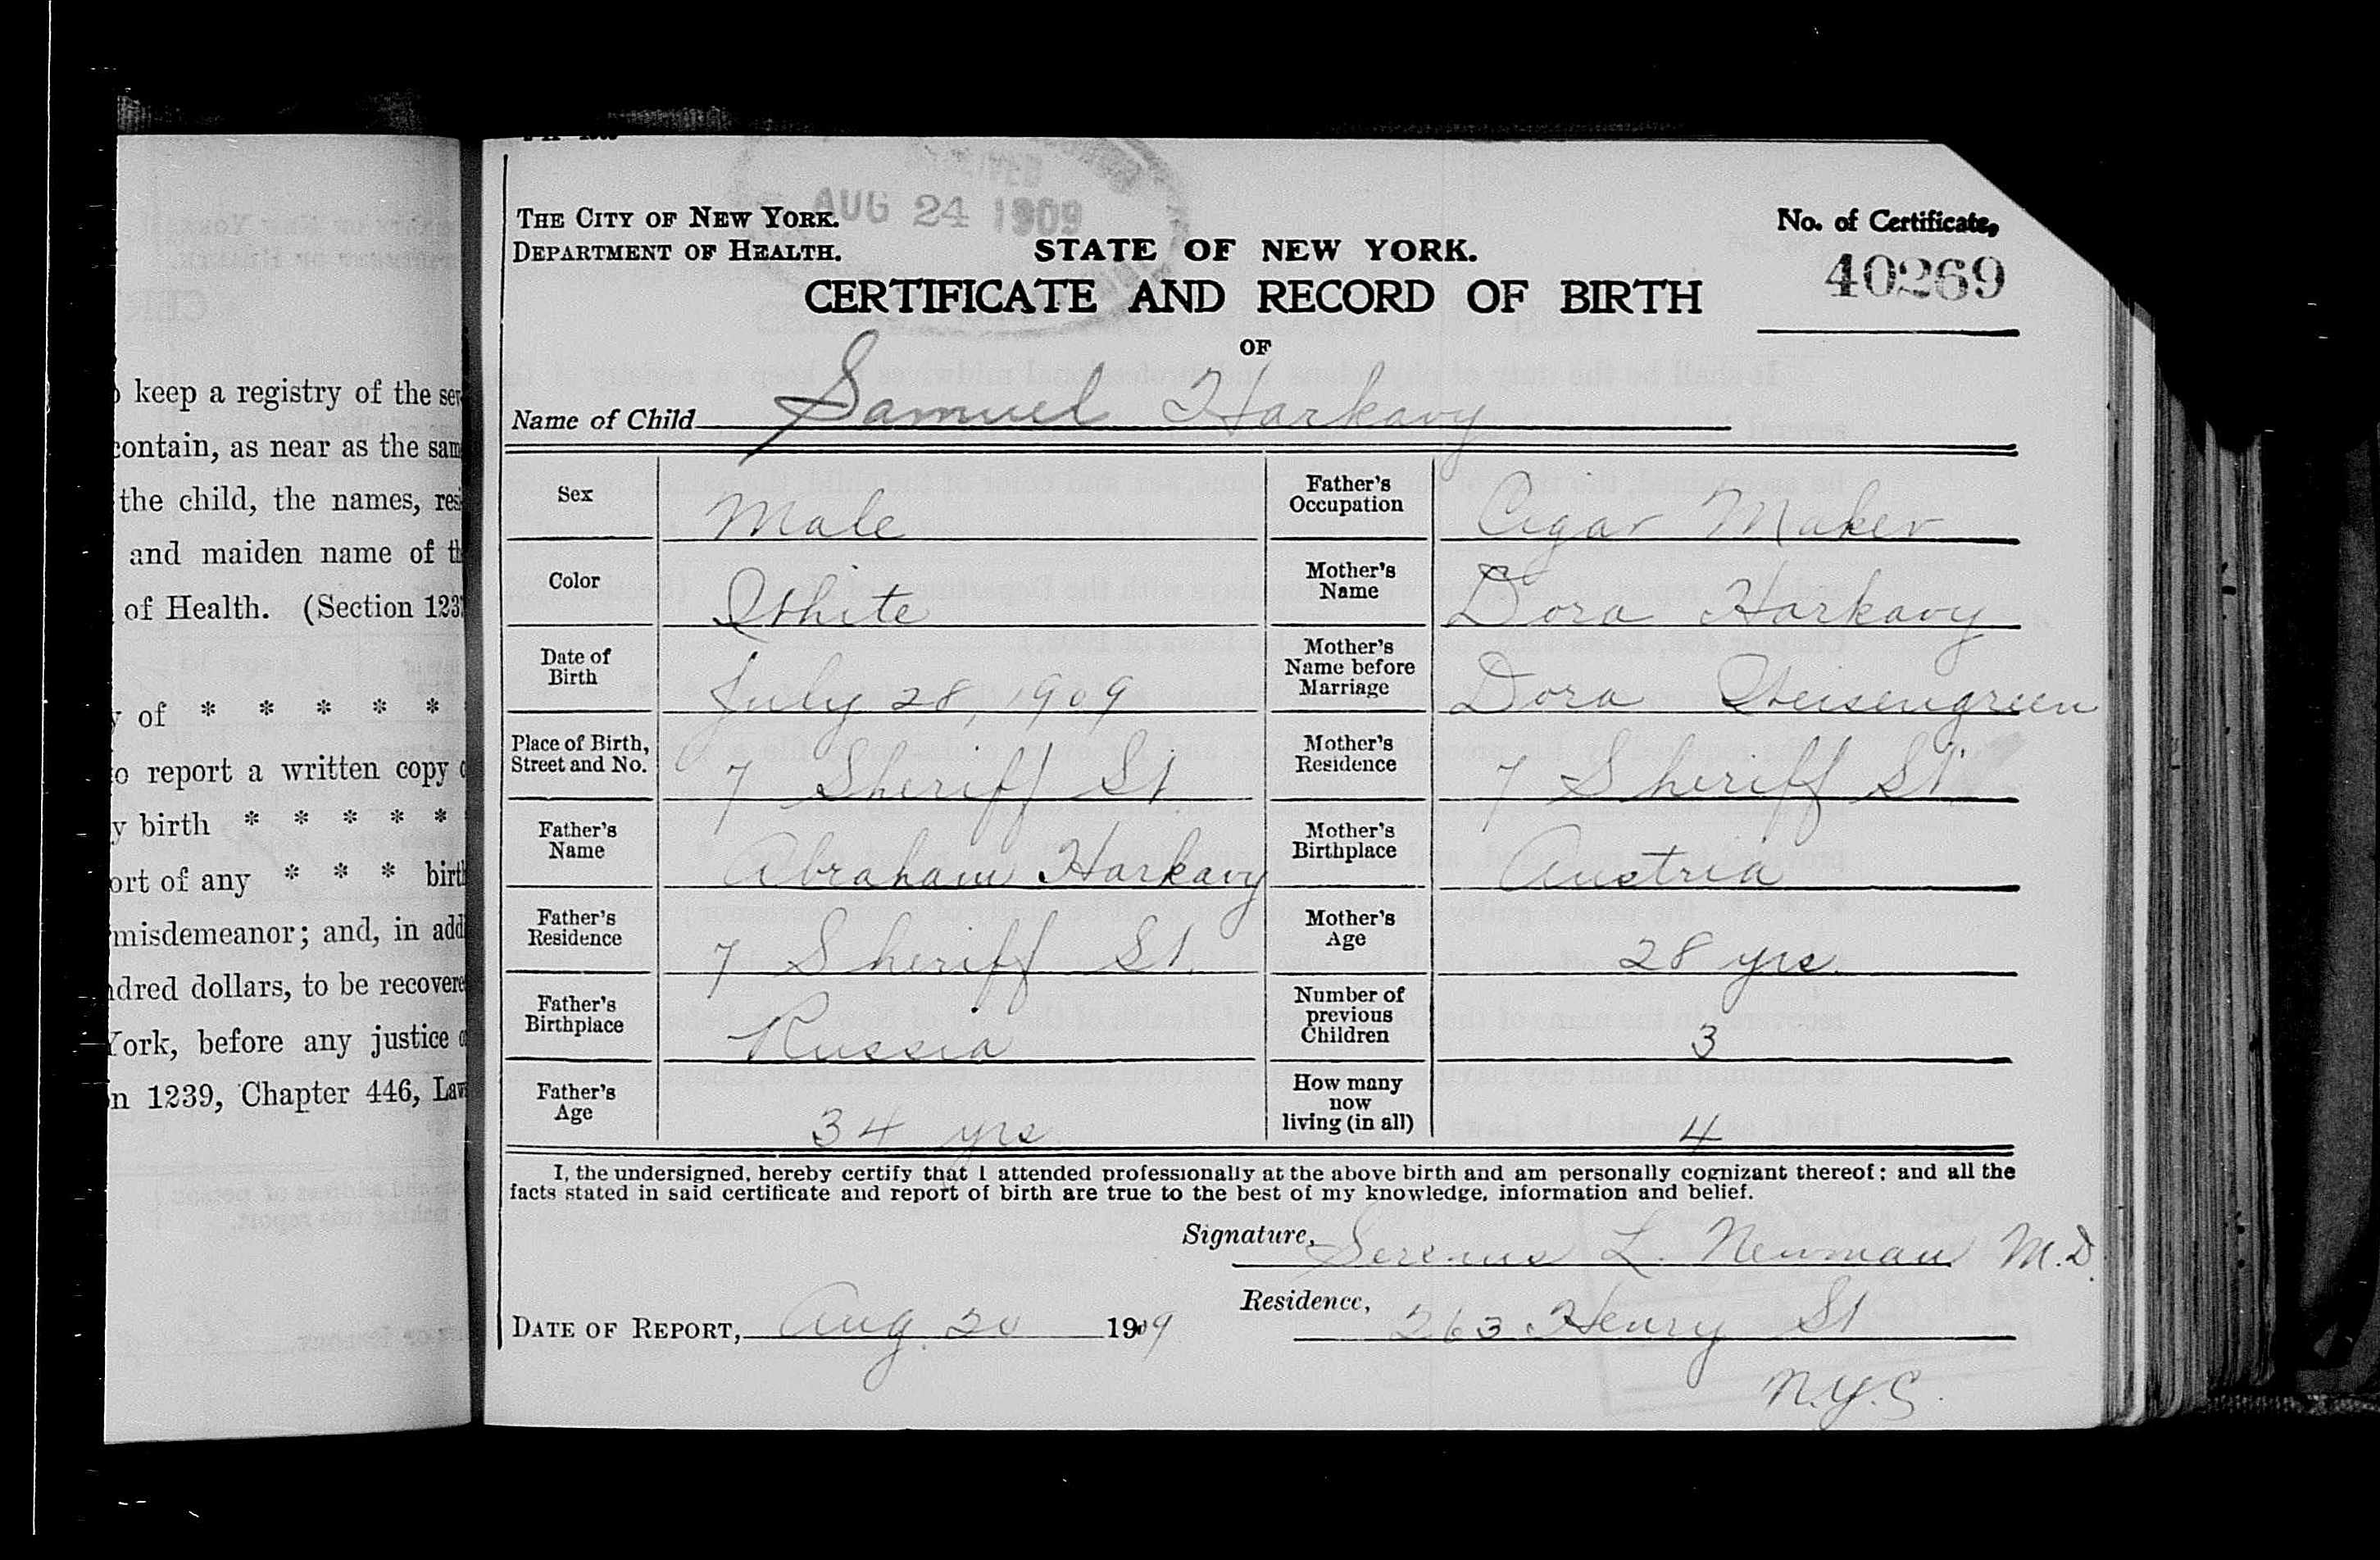 keep a registry of the
contain, as near as the
the child, the names,
and maiden name of
of Health. (Section
of * * * * *
report a written copy
birth * * * * *
of any * * *
misdemeanor; and, in
dollars, to be
York, before any justice
1239, Chapter 446,
AUG 24 1909
THE CITY OF NEW YORK.
DEPARTMENT OF HEALTH.
STATE OF NEW YORK.
CERTIFICATE AND RECORD OF BIRTH
OF
No. of Certificate,
40269
Name of Child Samuel Harkavy
Sex Male
Father's Occupation Cigar Maker
Color White
Mother's Name Dora Harkavy
Date of Birth July 28, 1909
Mother's Name before Marriage Dora
Place of Birth, Street and No. 7 Sheriff St.
Mother's Residence 7 Sheriff St.
Father's Name Abraham Harkavy
Mother's Birthplace Austria
Father's Residence 7 Sheriff St.
Mother's Age 28 yrs.
Father's Birthplace Russia
Number of previous Children 3
Father's Age 34 yrs
How many now living (in all) 4
I, the undersigned, hereby certify that I attended professionally at the above birth and am personally cognizant thereof; and all the
facts stated in said certificate and report of birth are true to the best of my knowledge, information and belief.
Signature, L. Newman M.D.
Residence, 263 Henry St
DATE OF REPORT, Aug. 20 1909
N.Y.C.